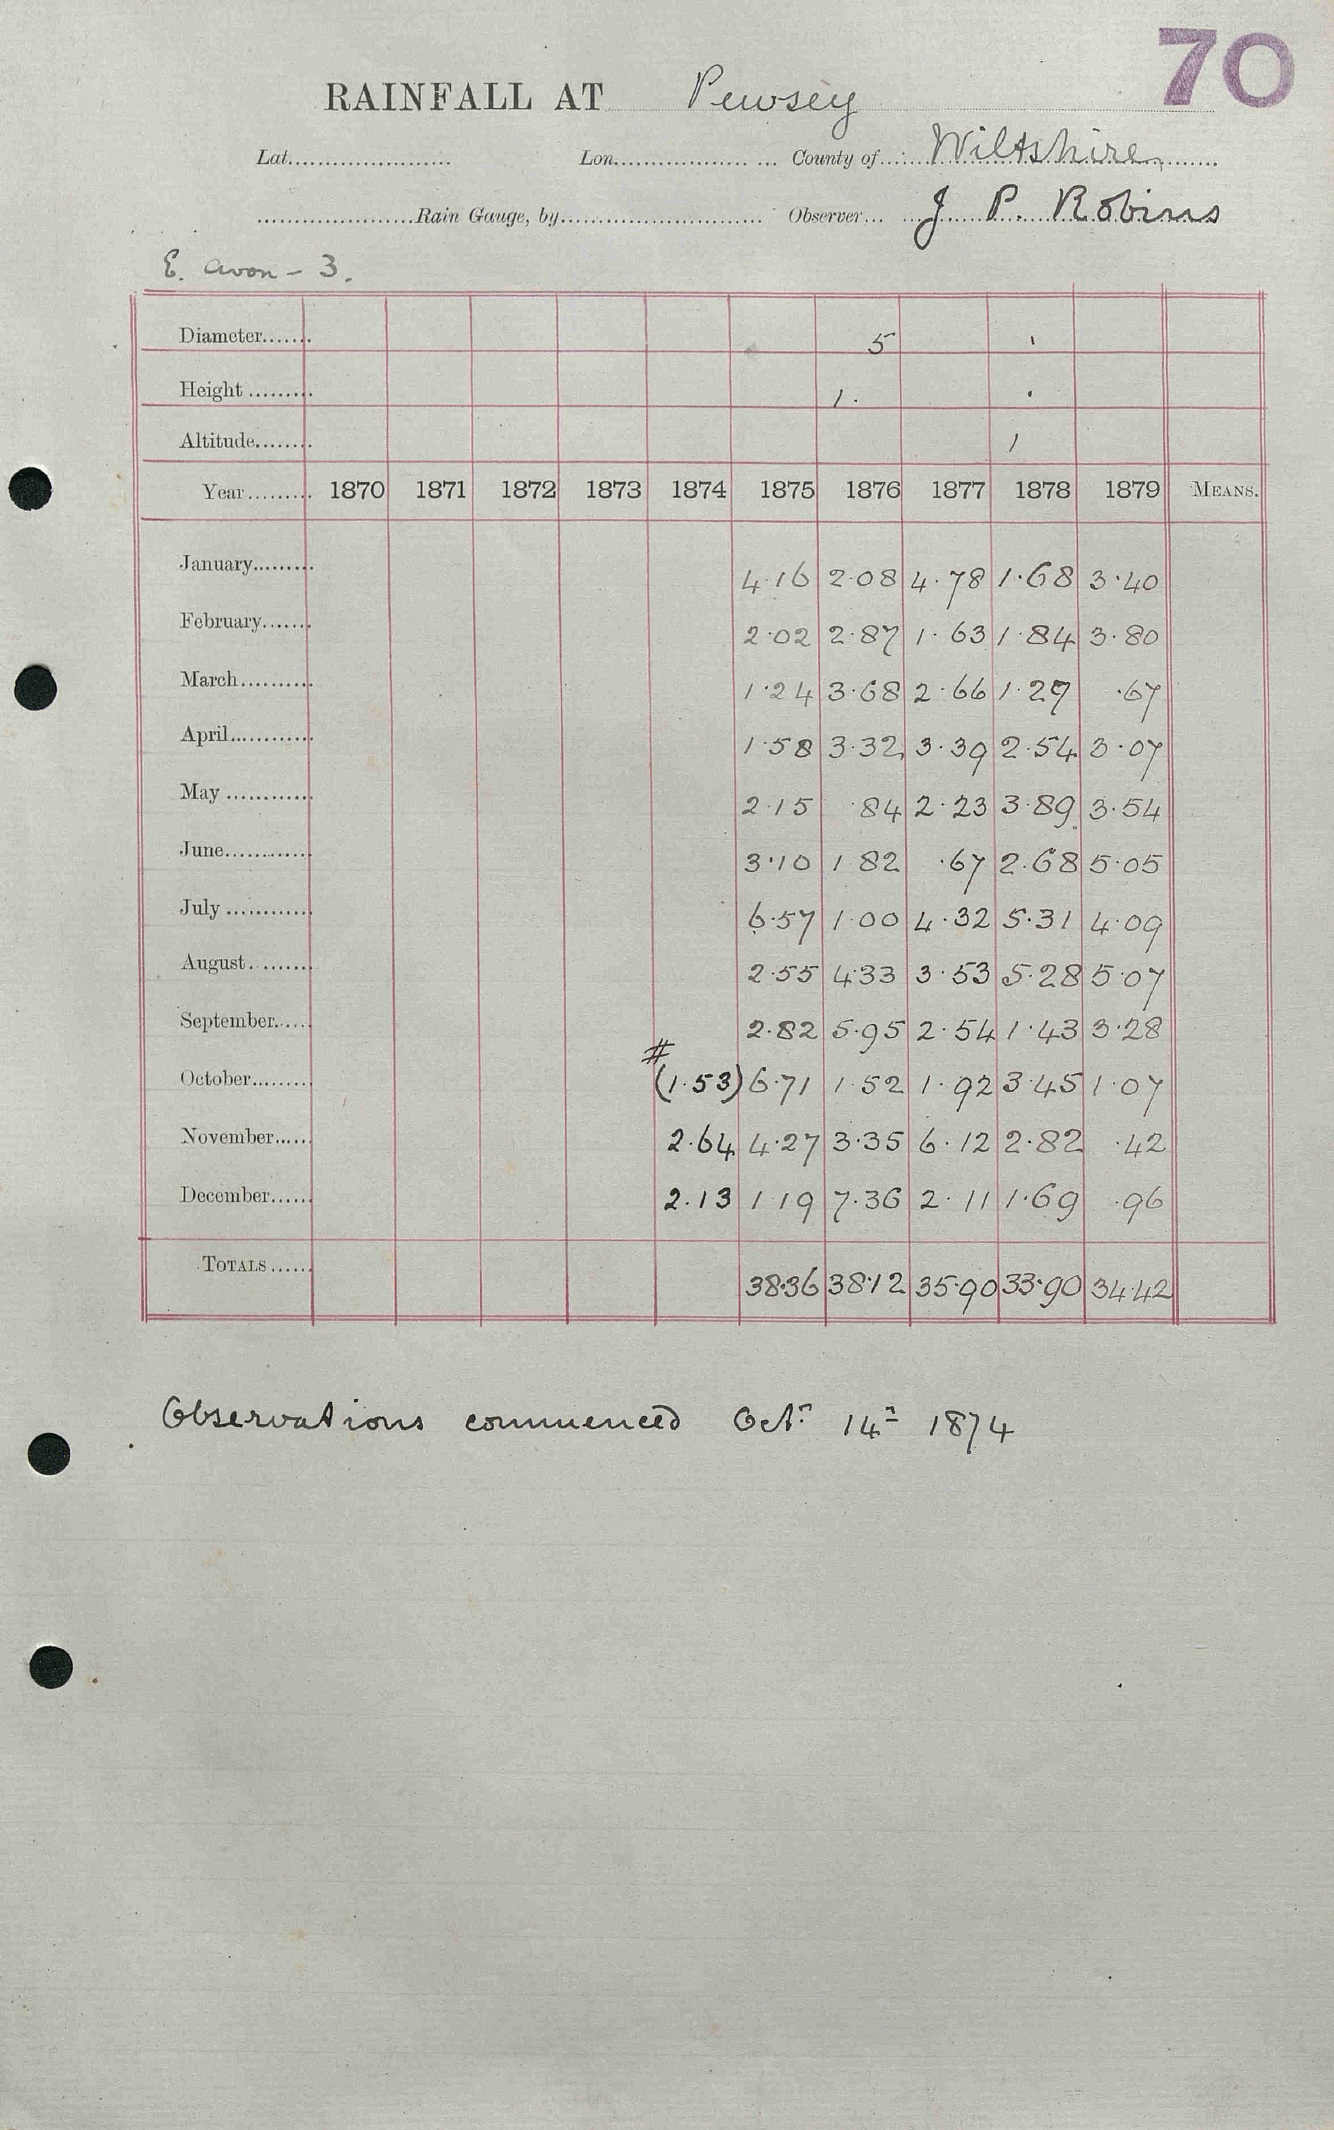 70
RAINFALL AT Pewsey
Lat. Lon. County of Wiltshire
Rain Gauge, by Observer J. P. Robins
E. Avon - 3.
Diameter 5 '
Height 1. .
Altitude 1
Year 1870 1871 1872 1873 1874 1875 1876 1877 1878 1879 MEANS.
January 4.16 2.08 4.78 1.68 3.40
February 2.02 2.87 1.63 1.84 3.80
March 1.24 3.68 2.66 1.29 .67
April 1.58 3.32 3.39 2.54 3.07
May 2.15 .84 2.23 3.89 3.54
June 3.10 1.82 .67 2.68 5.05
July 6.57 1.00 4.32 5.31 4.09
August 2.55 4.33 3.53 5.28 5.07
September 2.82 5.95 2.54 1.43 3.28
#
October (1.53) 6.71 1.52 1.92 3.45 1.07
November 2.64 4.27 3.35 6.12 2.82 .42
December 2.13 1.19 7.36 2.11 1.69 .96
TOTALS 38.36 38.12 35.90 33.90 34.42
Observations commenced Octr 14th 1874